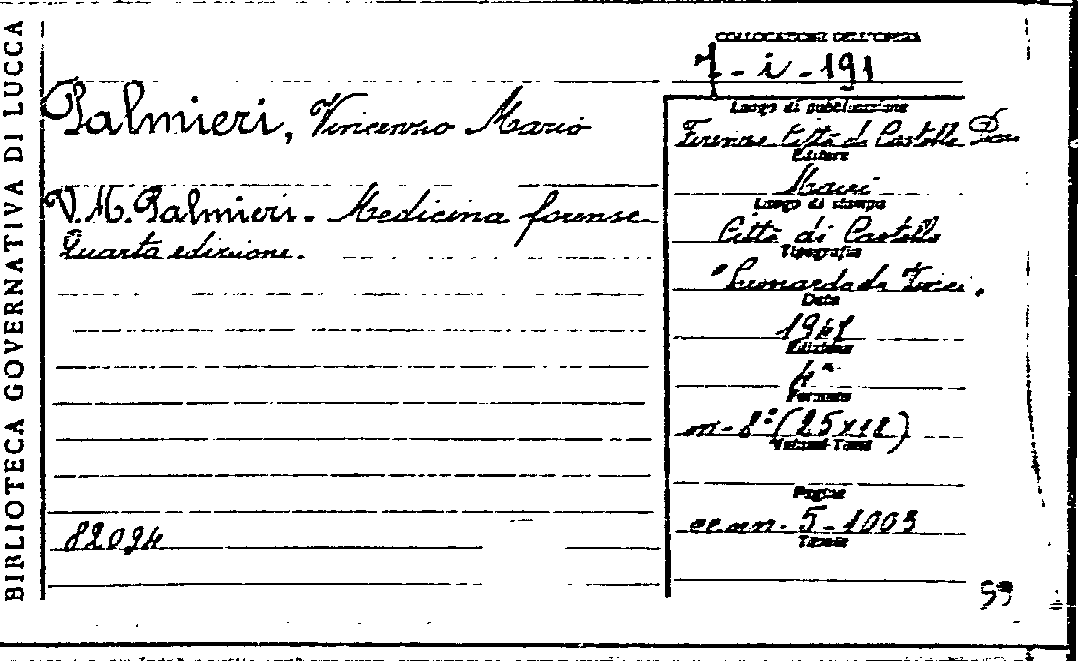 BIBLIOTECA GOVERNATIVA DI LUCCA
COLLOCAZIONE DELL'OPERA
7-i-191
Palmieri, Vincenzo Mario
V. M. Palmieri. - Medicina forense
Quarta edizione.
82094
Luogo di pubblicazione
Firenze Città di Castello
Editore
Macrì
Luogo di stampa
Città di Castello
Tipografia
"Leonardo da Vinci.
Data
Edizione
4ª
Formato
m-8° (25x18)
Volumi-Tomi
Pagine
cc. nn. 5-1003
Tavole
99